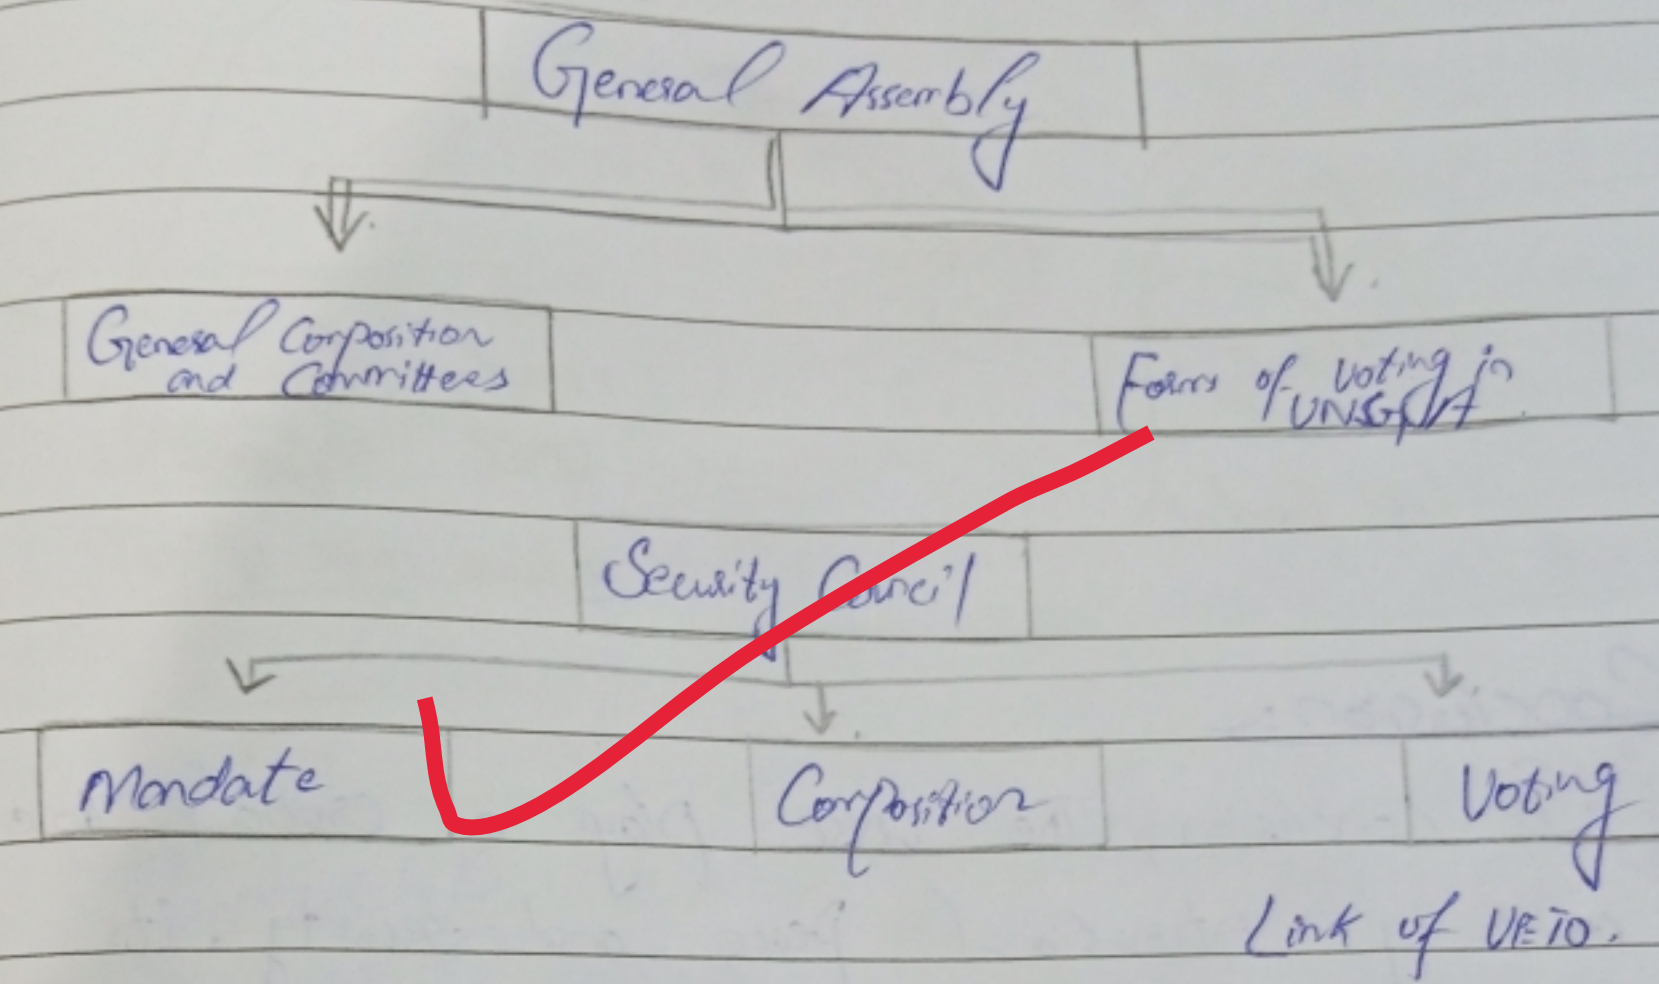 General Assembly
General Composition
and Committees
Forms of voting in
Security Council
Mandate
Composition
Voting
Link of VETO.